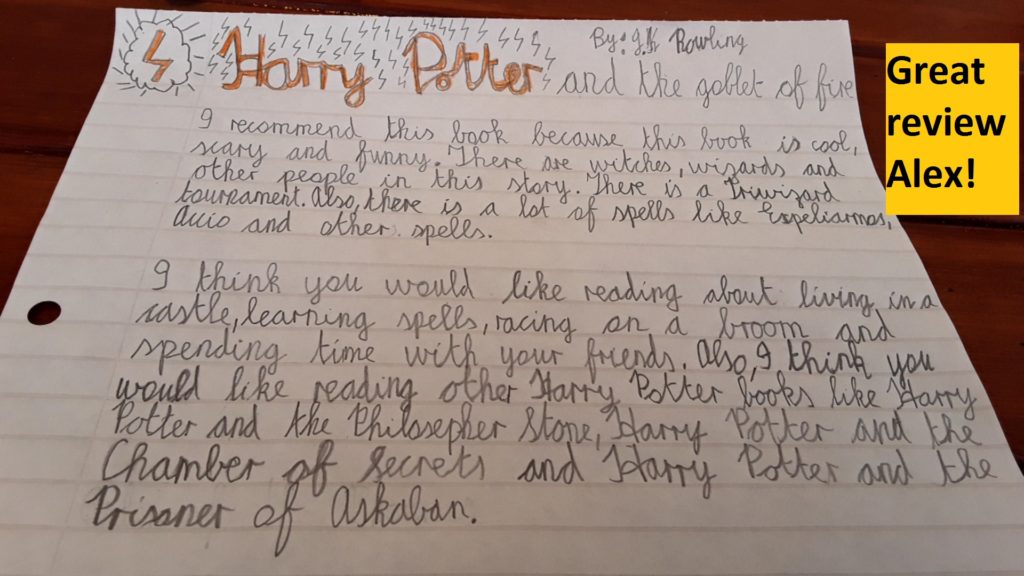 Harry Potter By: J.K Rowling
and the goblet of fire
I recommend this book because this book is cool,
scary and funny. There are witches, wizards and
other people in this story. There is a Triwizard
toureament. Also, there is a lot of spells like Expeliarmos,
Accio and other spells.
I think you would like reading about living in a
castle, learning spells, racing on a broom and
spending time with your friends. Also, I think you
would like reading other Harry Potter books like Harry
Potter and the Philosepher Stone, Harry Potter and the
Chamber of Secrets and Harry Potter and the
Prisoner of Askaban.
Great
review
Alex!